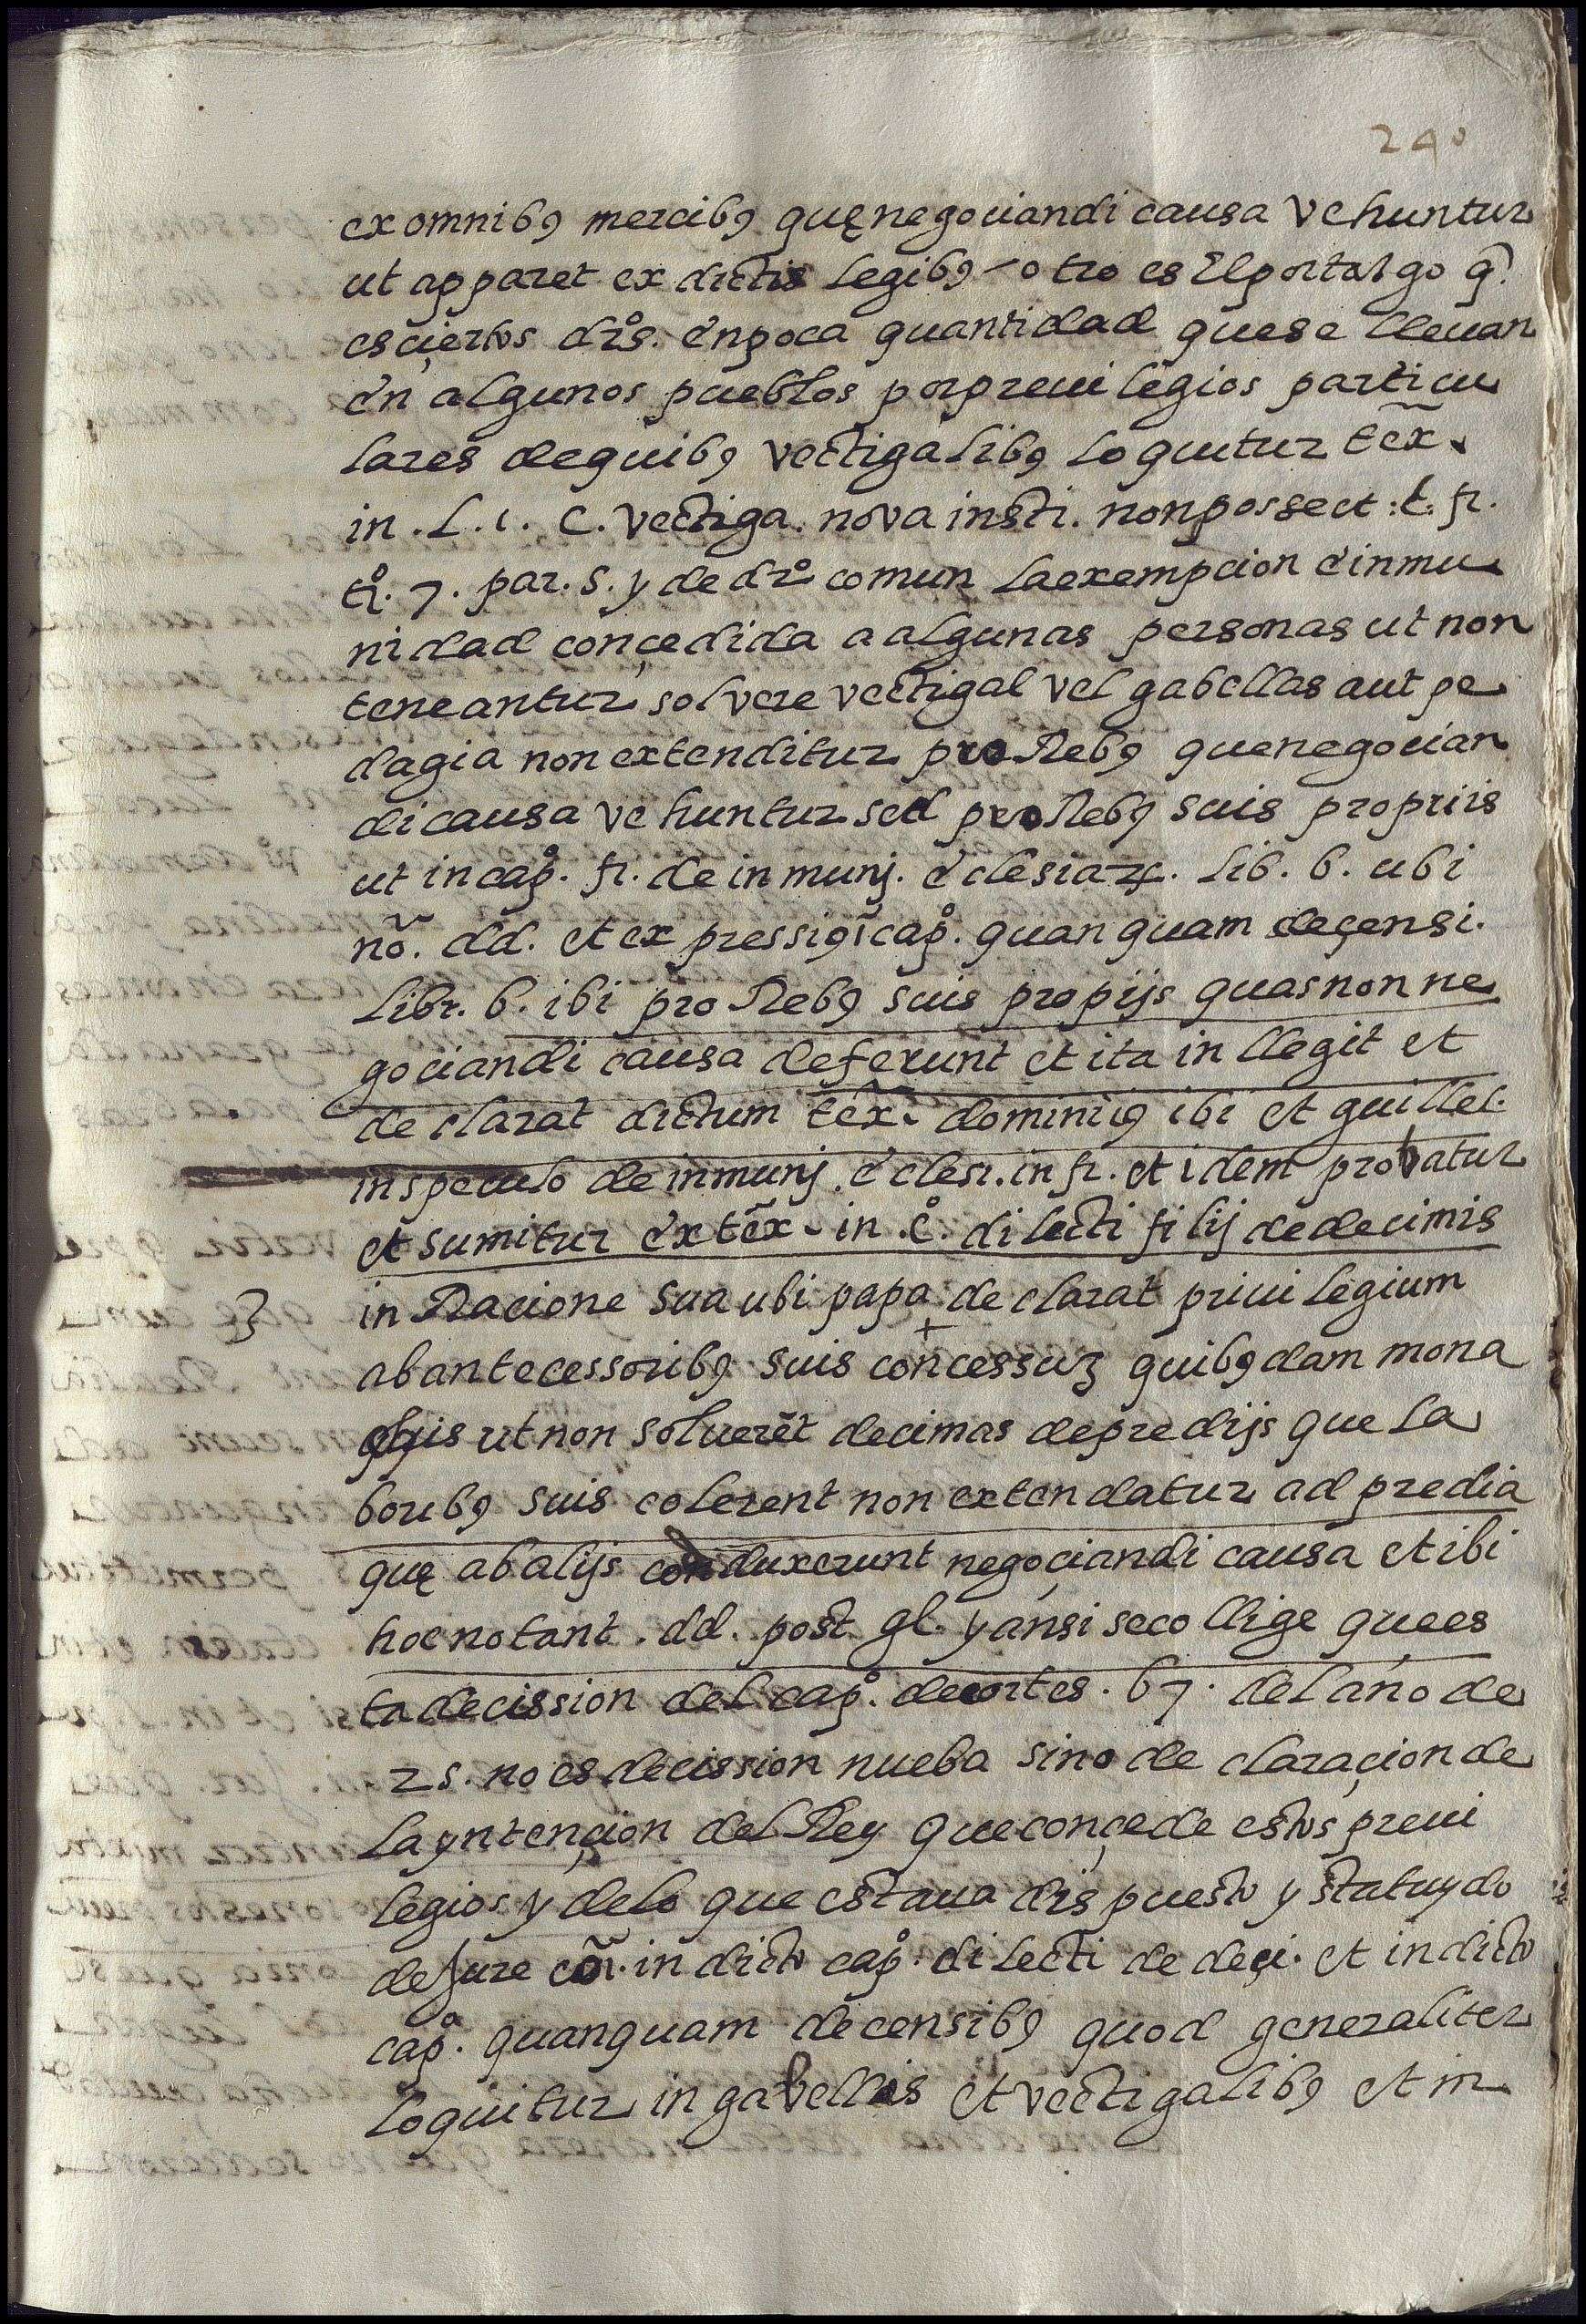 240
ex omnibꝯ mercibꝯ quę negociandi causa vehuntur
ut apparet ex dictis legibꝯ - otro es El portalgo q̃.
es çiertos drºs. en poca quantidad que se lleuan
en algunos pueblos por preuilegios particu
lares de quibꝯ vectigalibꝯ loquitur tex̃.
in . l . 1 . C . vectiga . nova insti . non posse et : l . fi .
tiº . 7 . par . 5 . y de drº comun la exempcion e inmu
nidad conçedida a algunas personas ut non
teneantur solvere vectigal vel gabellas aut pe
dagia non extenditur pro Rebꝯ que negocian
di causa vehuntur sed pro Rebꝯ suis propriis
ut in capº . fi . de inmunj . eclesiaꝝ . lib . 6 . ubi
nõ . dd . et expressiꝯ ĩ capº . quanquam de çensi .
libr . 6 . ibi pro Rebꝯ suis propijs quas non ne
gociandi causa deferunt et ita intllegit et
declarat dictum tex̃ . dominiꝯ ibi et guillel .
in speculo de inmunj . eclesi . in fi . et idem probatur
et sumitur ex tex̃ . in . cº . dilecti filij de decimis
3 in Racione sua ubi papa + declarat priuilegium
ab antecessoribꝯ suis concessuȝ quibꝯdam mona
chis ut non soluerẽt decimas de predijs que la
boribꝯ suis colerent non extendatur ad predia
quę ab alijs conduxerunt negoçiandi causa et ibi
hoc notant . dd . post gl . y ansi se collige que es
ta decission del capº . de cortes . 67 . del año de
25 . no es decission nueba sino declaraçion de
la yntençion del Rey que conçede estos preui
legios y de lo que estaua dispuesto y statuydo
de Jure cõi . in dicto capº . dilecti de deçi . et in dicto
capº . quanquam de censibꝯ quod generaliter
loquitur in gabellis et vectigalibꝯ et in